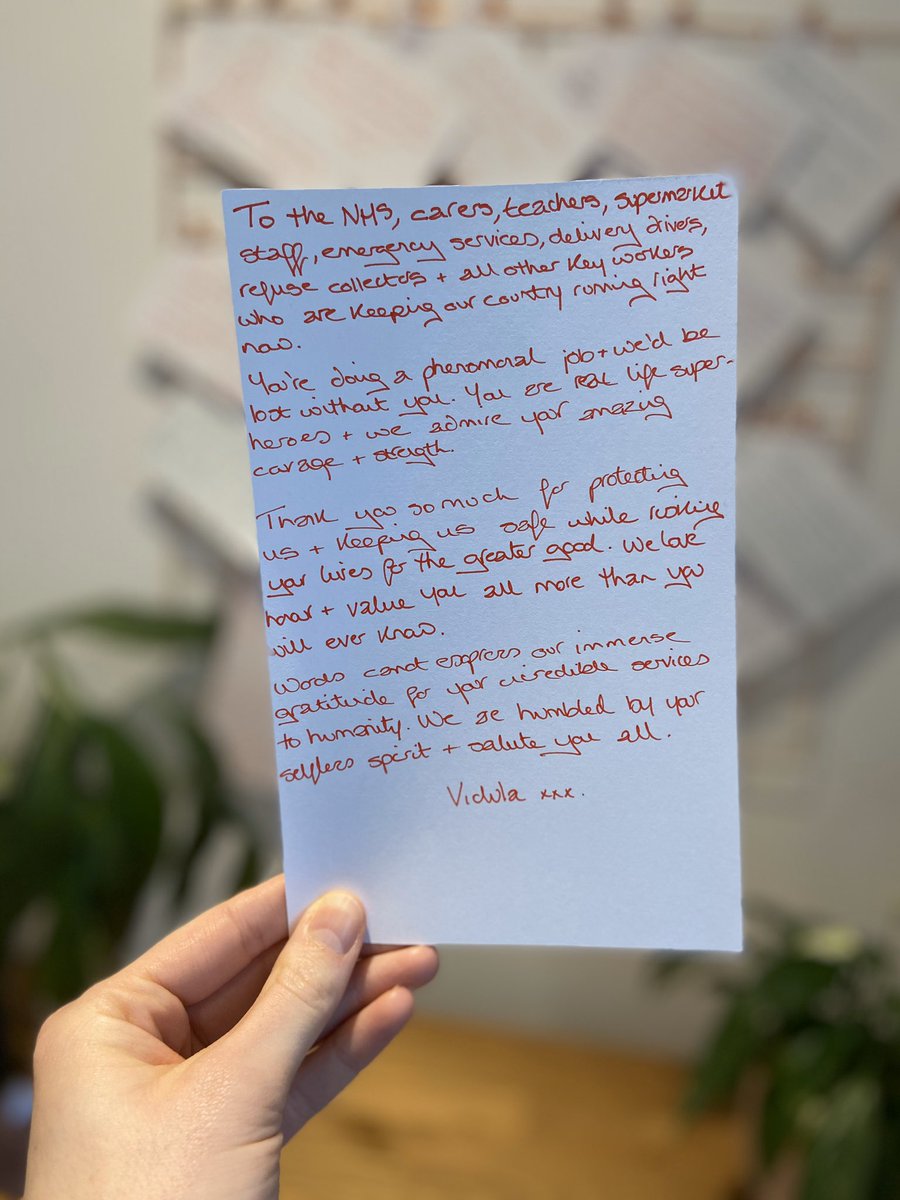 To the NHS, carers, teachers, supermarket
staff, emergency services, delivery drivers,
refuse collectors + all other key workers
who are keeping our country running right
now.
You're doing a phenomenal job + we'd be
lost without you. You are real life super-
heroes + we admire your amazing
courage + strength.
Thank you so much for protecting
us + keeping us safe while risking
your lives for the greater good. We love
honour + value you all more than you
will ever know.
Words cannot express our immense
gratitude for your incredible services
to humanity. We are humbled by your
selfless spirit + salute you all.
Vidula xxx.